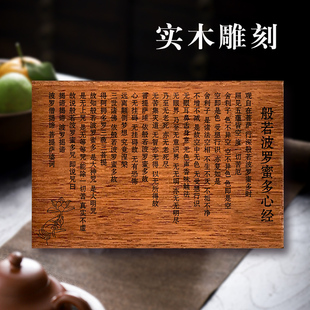 实木雕刻
般若波罗蜜多心经
观自在菩萨 行深般若波罗蜜多时
照见五蕴皆空 度一切苦厄
舍利子 色不异空 空不异色 色即是空
空即是色 受想行识 亦复如是
舍利子 是诸法空相 不生不灭 不垢不净
不增不减 是故空中无色 无受想行识
无眼耳鼻舌身意 无色声香味触法
无眼界 乃至无意识界 无无明 亦无无明尽
乃至无老死 亦无老死尽
无苦集灭道 无智亦无得 以无所得故
菩提萨埵 依般若波罗蜜多故
心无挂碍 无挂碍故 无有恐怖
远离颠倒梦想 究竟涅槃
三世诸佛 依般若波罗蜜多故
得阿耨多罗三藐三菩提
故知般若波罗蜜多 是大神咒 是大明咒
是无上咒 是无等等咒 能除一切苦 真实不虚
故说般若波罗蜜多咒 即说咒曰
揭谛揭谛 波罗揭谛
波罗僧揭谛 菩提萨婆诃